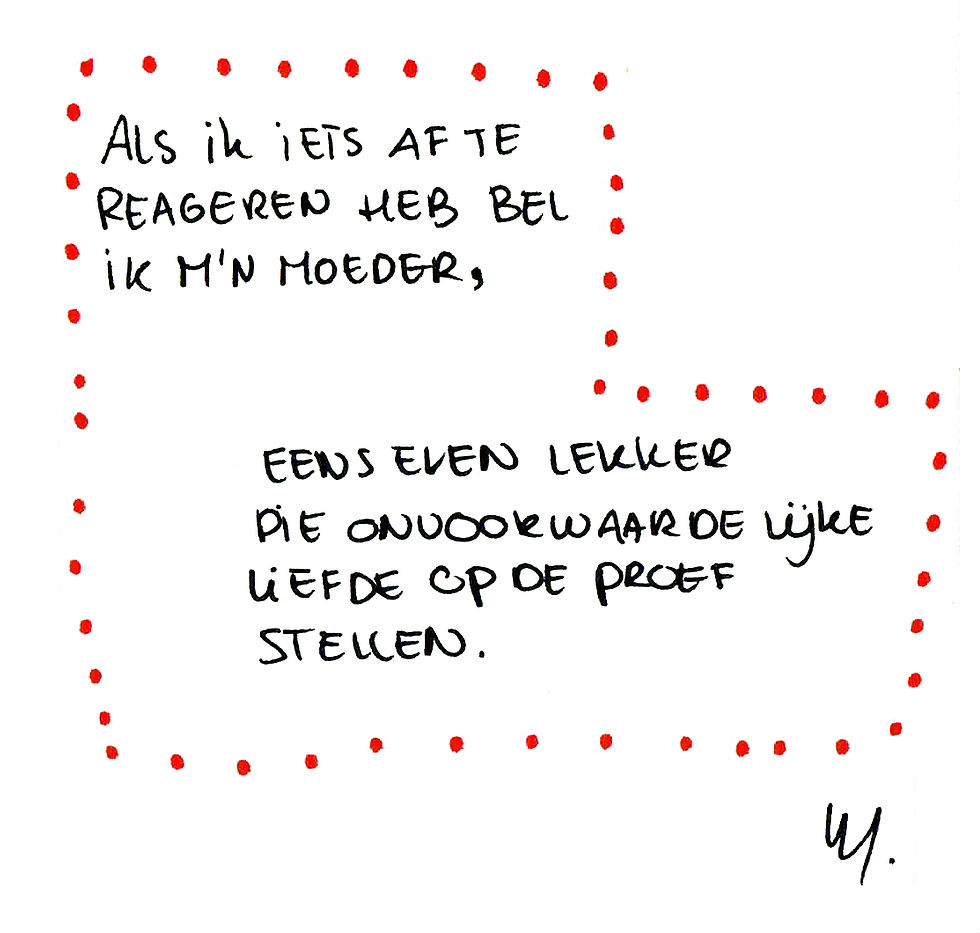 ALS ik iETS AF TE
REAGEREN HEB BEL
iK M'N MOEDER,
EENS EVEN LEKKER
DIE ONVOORWAARDELIJKE
LIEFDE OP DE PROEF
STELLEN.